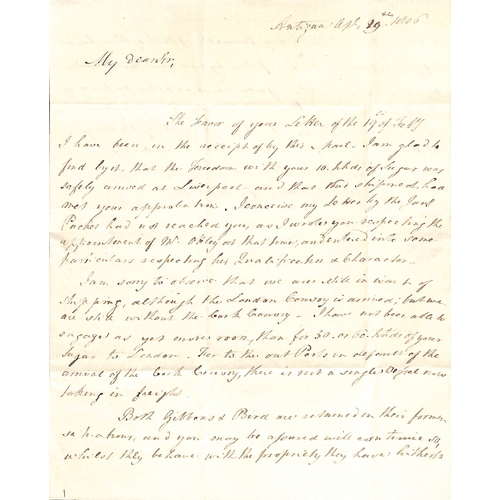 Antigua Apl. 19th 1806
My dear Sir,
The Favor of your Letter of the 19th of Feby
I have been in the receipt of by this Pacet. I am glad to
find by it, that the Freedom with your 10 hhds of Sugar was
safely arrived at Liverpool and that this shipment had
met your approbation, I conceive my Letter by the Jany
Packet had not reached you, as I wrote you respecting the
appointment of Mr. at that time, and entered into some
particulars respecting his Qualification & Character.
I am sorry to observe that we are still in want of
shipping, although the London Convoy is arrived; but we
are still without the Cork Convoy. I have not been able to
engage as yet more room, than for 50 or 60 hhds of your
Sugar to London. For to the out Ports in default of the
arrival of the Cork Convoy, there is not a single Vessel now
taking in freight.
Both Gibbons & Bird are retained in their former
situations, and you may be assured will continue so,
whilst they behave with the propriety they have hitherto
1